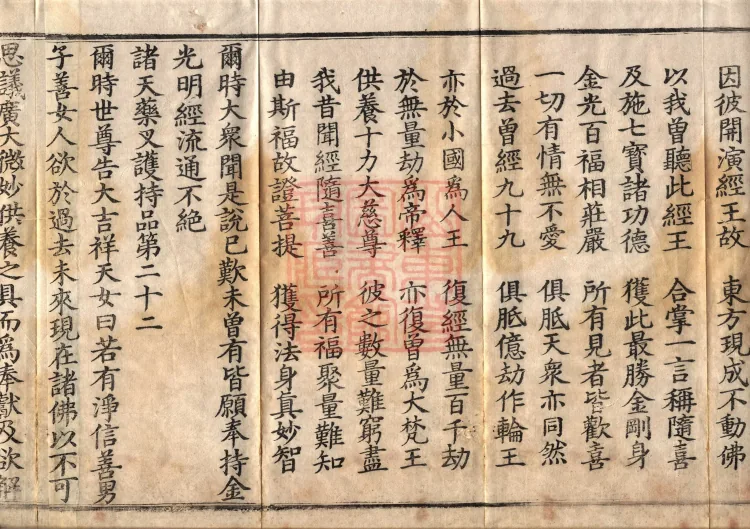 因彼開演經王故　東方現成不動佛
以我曾聽此經王　合掌一言稱隨喜
及施七寶諸功德　獲此最勝金剛身
金光百福相莊嚴　所有見者皆歡喜
一切有情無不愛　俱胝天衆亦同然
過去曾經九十九　俱胝億劫作輪王
亦於小國為人王　復經無量百千劫
於無量劫為帝釋　亦復曾為大梵王
供養十力大慈尊　彼之數量難窮盡
我昔聞經隨喜善　所有福聚量難知
由斯福故證菩提　獲得法身真妙智
爾時大衆聞是說已歎未曾有皆願奉持金
光明經流通不絶
諸天藥叉護持品第二十二
爾時世尊告大吉祥天女曰若有淨信善男
子善女人欲於過去未來現在諸佛以不可
思議廣大微妙供養之具而為奉獻及欲解